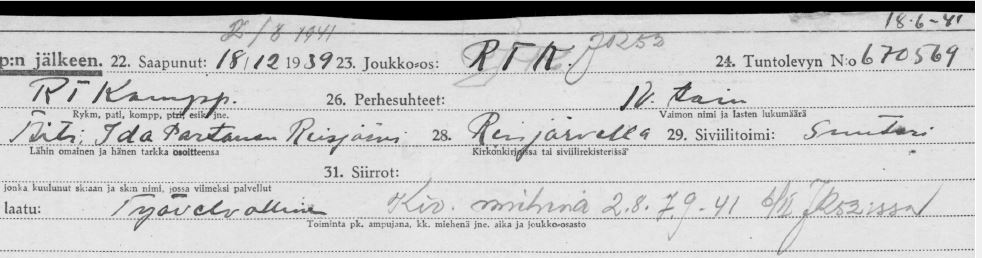 18.6-41
2/8 1941
p:n jälkeen. 22. Saapunut: 18/12 1939 23. Joukko-os: RTK. JR52 24. Tuntolevyn N:o 670569
RT Kompp. 26. Perhesuhteet: N. Lain
Rykm, pati, kompp, ptri, esik. jne. Vaimon nimi ja lasten lukumäärä
Äiti: Ida Paretanen Reisjärvi 28. Reisjärvellä 29. Siviilitoimi: Suutari
Lähin omainen ja hänen tarkka osoitteensa Kirkonkirjoissa tai siviilirekisterissä
31. Siirrot:
jonka kuulunut sk:aan ja sk:n nimi, jossa viimeksi palvellut
laatu: Työvelvollinen Kiv. miehenä 2.8.-7.9-41 JR52:ssa
Toiminta pk. ampujana, kk. miehenä jne. aika ja joukko-osasto